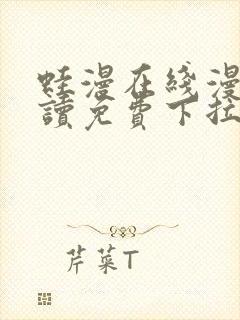 蛙漫在线漫
讀免費下拉
芹菜T